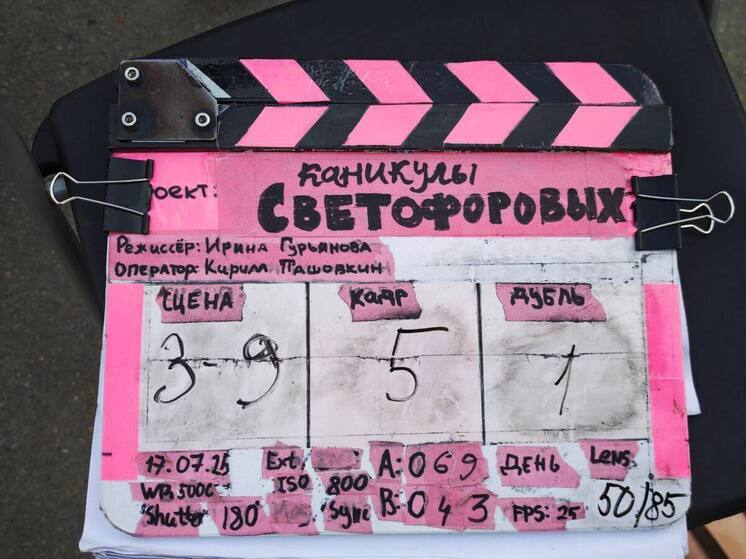 роект:
Каникулы
СВЕТОФОРОВЫХ
Режиссёр: Ирина Гурьянова
Оператор: Кирилл Пашовкин
СЦЕНА КАДР ДУБЛЬ
3-9 5 1
17.07.25 Ext A: 069 ДЕНЬ Lens
WB 5000 ISO 800 B: 043 50/85
"Shutter" 180° "Sync" FPS: 25